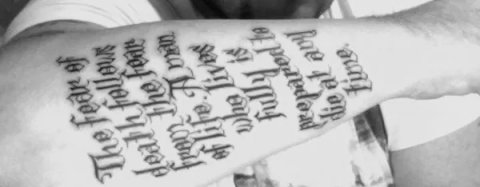 The fear of
death follows
from the fear
of life. A man
who lives
fully is
prepared to
die at any
time.